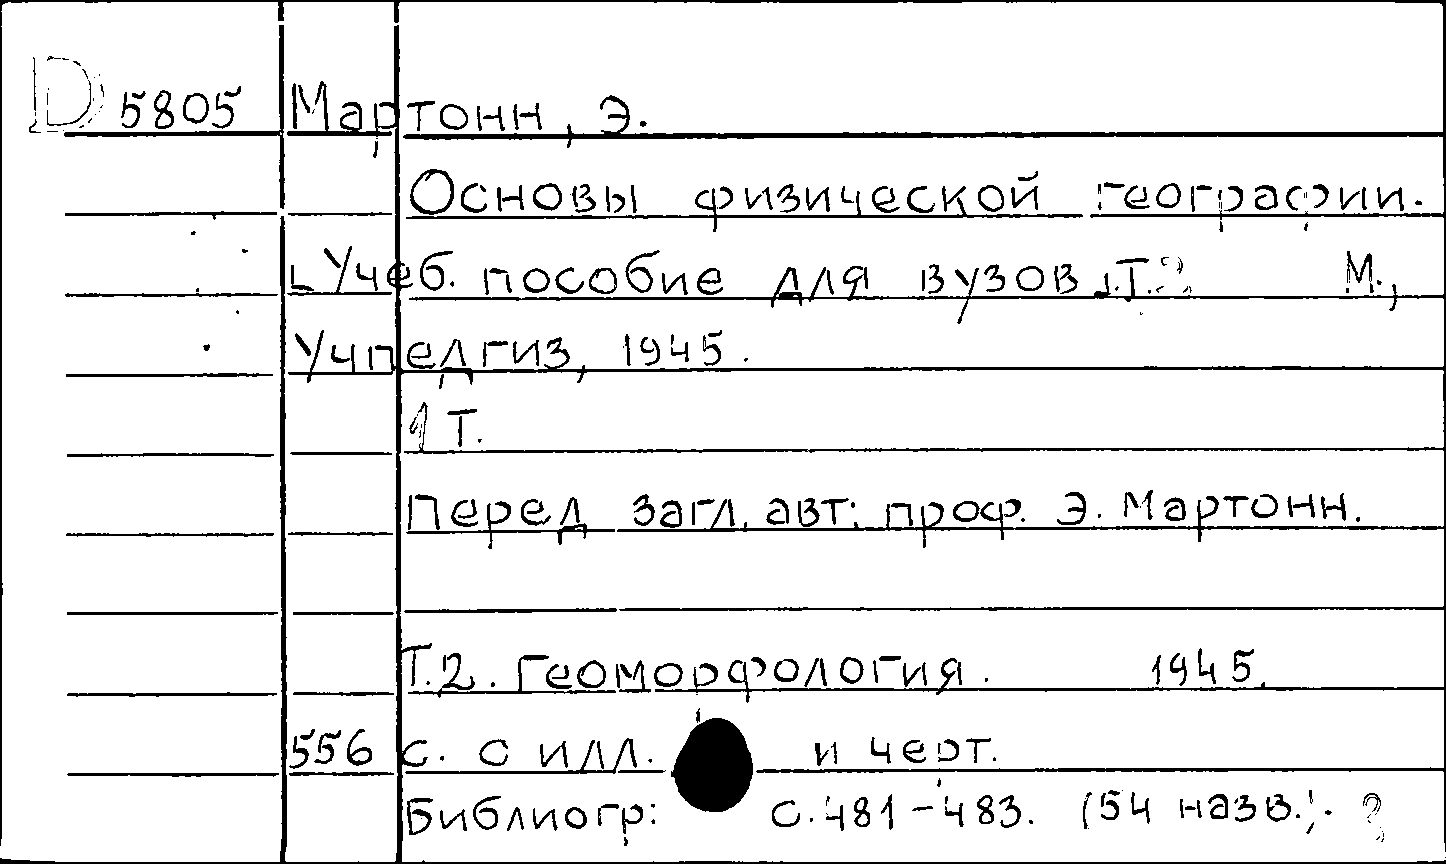 D 5805 Мартонн, Э.
Основы физической географии.
Учеб. пособие для вузов. Т.2 М.,
Учпедгиз, 1945.
1 Т.
Перед загл. авт: проф. Э. Мартонн.
Т.2. Геоморфология. 1945.
556 с. с илл. и черт.
Библиогр: с. 481-483. (54 назв.).